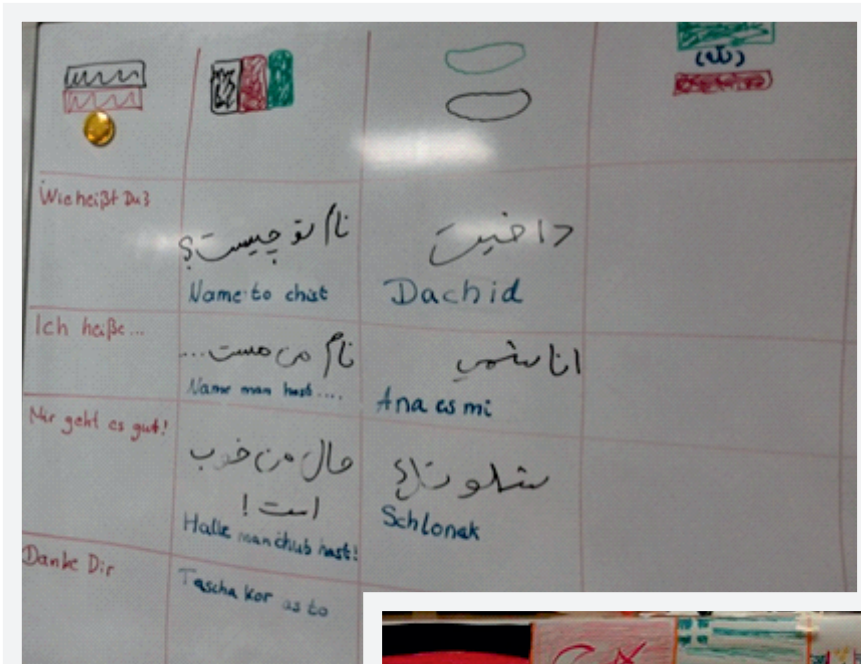 (الله)
Wie heißt Du?
نام تو چیست؟
Name to chist
داخيت
Dachid
Ich heiße...
نام من هست...
Name man hast....
انا
Ana es mi
Mir geht es gut!
حال من خوب
است!
Halle man chub hast!
Schlonak
Danke Dir
Taschakor as to